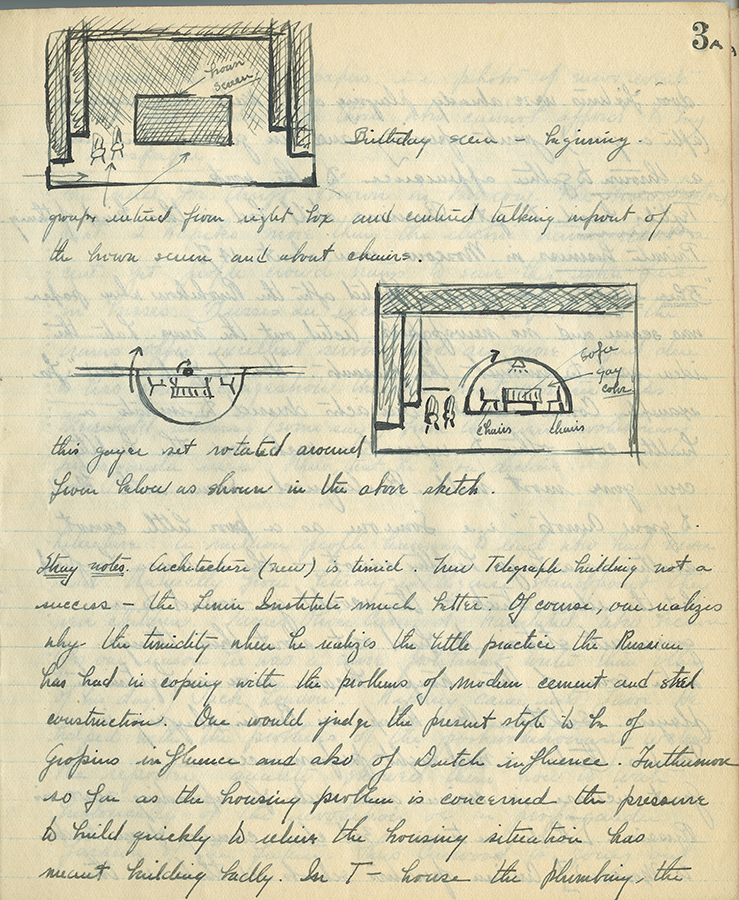 3A
brown
screen
Birthday scene - beginning.
groups entered from right box and centered talking infront of
the brown screen and about chairs.
sofa
gay
color
chairs chairs
this gayer set rotated around
from below as shown in the above sketch.
Stray notes. Architecture (new) is timid. New Telegraph building not a
success - the Lenin Institute much better. Of course, one realizes
why the timidity when he realizes the little practice the Russian
has had in coping with the problems of modern cement and steel
construction. One would judge the present style to be of
Gropius influence and also of Dutch influence. Furthermore
so far as the housing problem is concerned the pressure
to build quickly to relieve the housing situation has
meant building badly. In T- house the plumbing, the